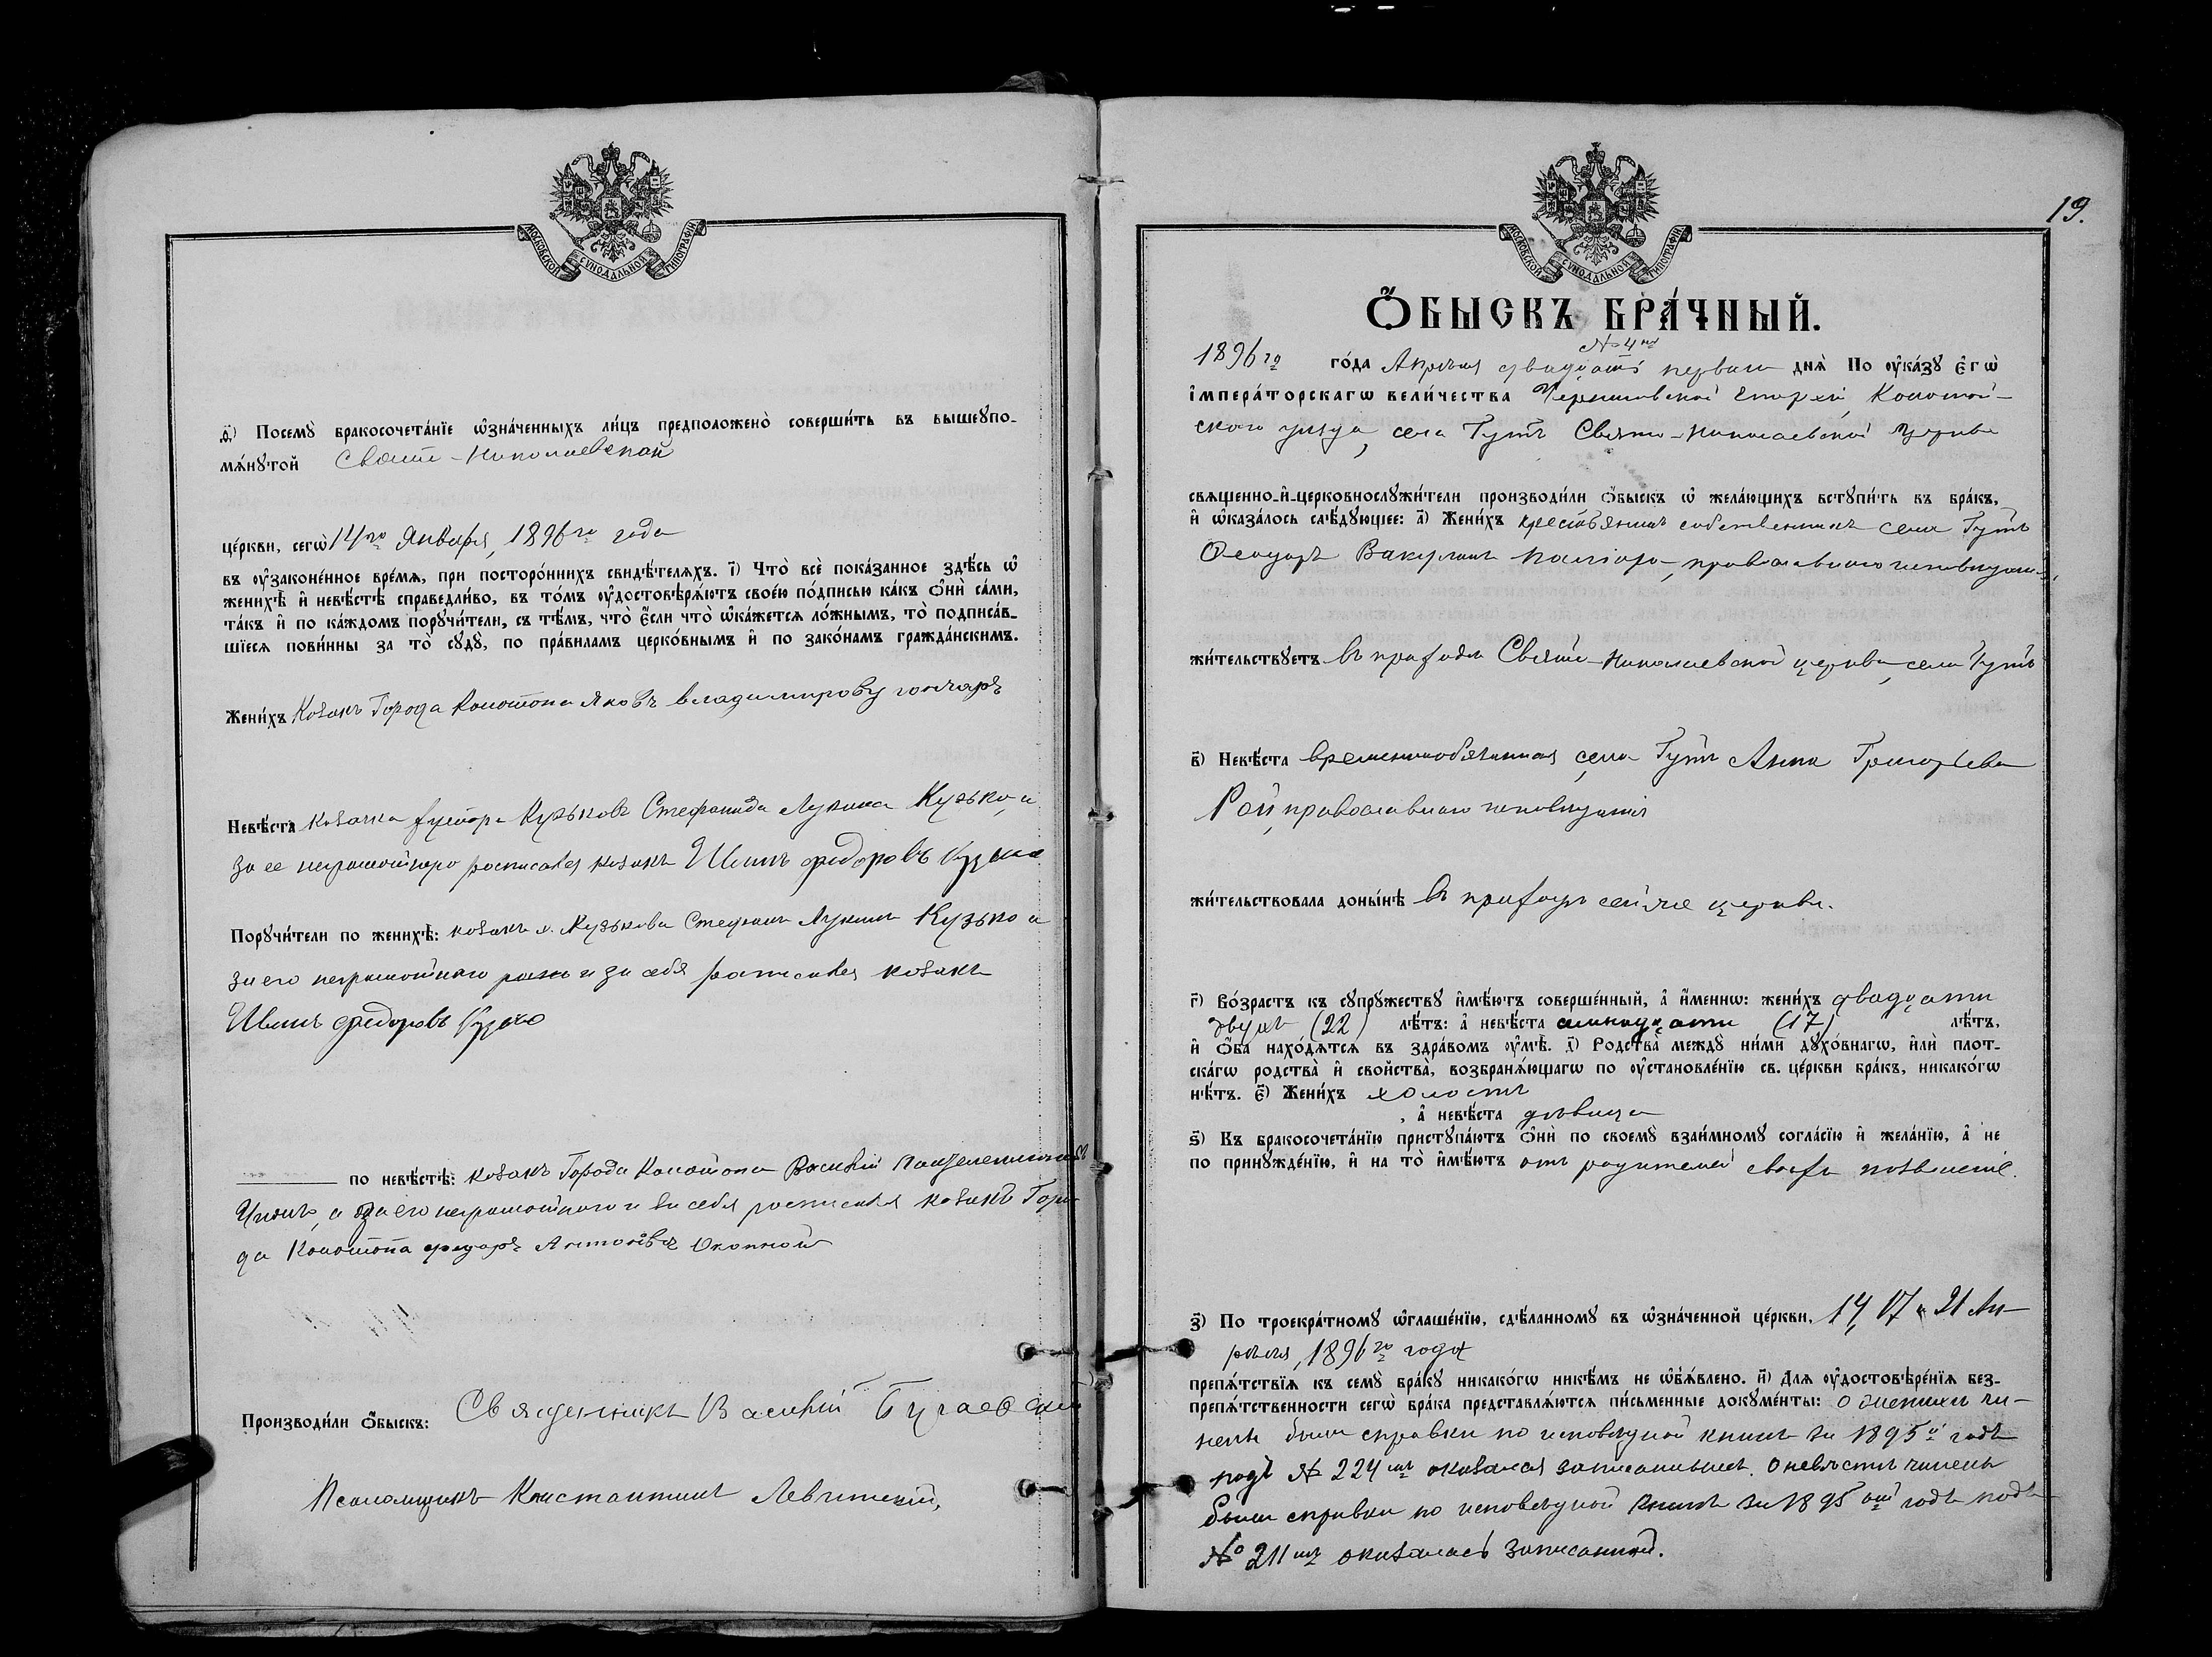 МОСКОВСКОЙ СѴНОДАЛЬНОЙ ТИПОГРАФІИ
ѳ҃) Посемꙋ̀ бракосочета́нїе ѡ҆зна́ченныхъ ли́цъ предположено̀ соверши́ть въ вышеꙋпо-
мѧ́нꙋтой Свято-Николаевской
це́ркви, сегѡ̀ 14го Января, 1896го года
въ ᲂу҆законе́нное вре́мѧ, при посторо́ннихъ свидѣ́телѧхъ. і҃) Что̀ всѐ пока́занное здѣ́сь ѡ҆
женихѣ̀ и҆ невѣ́стѣ справедли́во, въ то́мъ ᲂу҆достовѣрѧ́ютъ свое́ю по́дписью ка́къ ѻ҆нѝ са́ми,
та́къ и҆ по ка́ждомъ порꙋчи́тели, съ тѣ́мъ, что̀ є҆́сли что̀ ѡ҆ка́жетсѧ ло́жнымъ, то̀ подписа́в-
шїесѧ пови́нны за то̀ сꙋдꙋ̀, по пра́виламъ церко́внымъ и҆ по зако́намъ гражда́нскимъ.
Жени́хъ Козакъ Города Конотопа Яковъ владимировъ гончаръ
Невѣ́ста козачка хутора Кузьковъ Стефанида Лукина Кузько, а
за ее неграмотную росписался козакъ Иванъ федоровъ Кузько
Порꙋчи́тели по женихѣ̀: козакъ х. Кузькова Стефанъ Лукинъ Кузько а
за его неграмотного и за себя росписался козакъ
Иванъ федоровъ Кузько
по невѣ́стѣ: козакъ Города Конотопа Василій
а за его неграмотного и за себя росписался козакъ Горо-
да Конотопа федоръ Антоновъ
Производи́ли ѻ҆́быскъ: Священникъ Василій
Псаломщикъ Константинъ Левитскій,
19.
МОСКОВСКОЙ СѴНОДАЛЬНОЙ ТИПОГРАФІИ
Ѻ҆́БЫСКЪ БРА́ЧНЫЙ.
№ 4й
1896го го́да Апрѣля двадцать перваго днѧ̀ По ᲂу҆ка́зꙋ є҆гѡ̀
і҆мпера́торскагѡ вели́чества Черниговской Епархіи, Конотоп-
скаго уѣзда, села Гутъ Свято-Николаевской Церкви
свѧщенно-и҆-церковнослꙋжи́тели производи́ли ѻ҆́быскъ ѡ҆ жела́ющихъ встꙋпи́ть въ бра́къ,
и҆ ѡ҆каза́лось слѣ́дꙋющее: а҃) Жени́хъ крестьянинъ собственникъ села Гутъ
Ѳеодоръ Вакулинъ православнаго исповѣданія,
жи́тельствꙋетъ въ приходѣ Свято-Николаевской церкви, села Гутъ
в҃) Невѣ́ста временнообязанная села Гутъ Анна Григорьева
Рой, православнаго исповѣданія
жи́тельствовала доны́нѣ въ приходѣ сей же церкви.
г҃) Во́зрастъ къ сꙋпрꙋ́жествꙋ и҆мѣ́ютъ соверше́нный, а҆ и҆́меннѡ: жени́хъ двадцати
двухъ (22) лѣ́тъ: а҆ невѣ́ста семнадцати (17) лѣ́тъ,
и҆ ѻ҆́ба нахо́дѧтсѧ въ здра́вомъ ᲂу҆мѣ̀. д҃) Родства̀ междꙋ̀ ни́ми дꙋхо́внагѡ, и҆лѝ плот-
ска́гѡ родства̀ и҆ свойства̀, возбранѧ́ющагѡ по ᲂу҆становле́нїю св. це́ркви бра́къ, никако́гѡ
нѣ́тъ. є҃) Жени́хъ холостъ
, а҆ невѣ́ста дѣвица
ѕ҃) Къ бракосочета́нїю пристꙋпа́ютъ ѻ҆нѝ по своемꙋ̀ взаи́мномꙋ согла́сїю и҆ жела́нїю, а҆ не
по принꙋжде́нїю, и҆ на то̀ и҆мѣ́ютъ отъ родителей своихъ позволеніе.
з҃) По троекра́тномꙋ ѡ҆глаше́нїю, сдѣ́ланномꙋ въ ѡ҆зна́ченной це́ркви, 14, 17 и 21 Ап-
рѣля, 1896го года
препѧ́тствїѧ къ семꙋ̀ бра́кꙋ никако́гѡ никѣ́мъ не ѡ҆б̾ѧ́влено. и҃) Длѧ ᲂу҆достовѣре́нїѧ без-
препѧ́тственности сегѡ̀ бра́ка представлѧ́ютсѧ пи́сьменные докꙋме́нты: о женихѣ чи-
нены были справки по исповѣдной книгѣ за 1895й годъ
подъ № 224мъ оказался записаннымъ. О невѣстѣ чинены
были справки по исповѣдной книгѣ за 1895ый годъ подъ
№ 211мъ оказалась записанной.